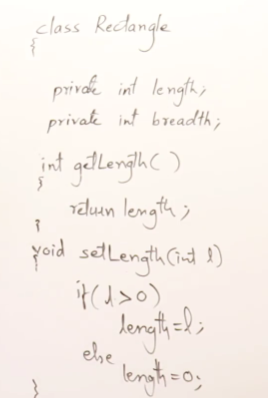 class Rectangle
{
private int length;
private int breadth;
int getLength( )
{
return length;
}
void setLength(int l)
{
if(l>0)
length=l;
else
length=0;
}